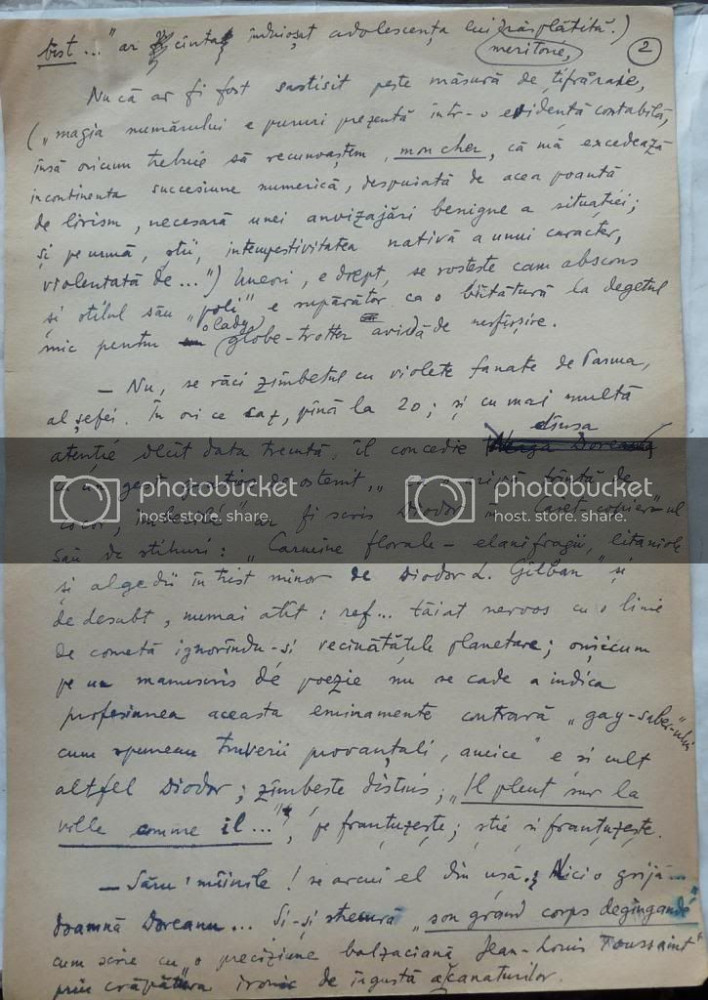 bist..." ar cînta înduioşat adolescenţa lui răsplătită.)
meritorie,
2
Nu că ar fi fost sastisit peste măsură de ţifrăraie,
("magia numărului e pururi prezentă într-o evidenţă contabilă,
însă oricum trebuie să recunoaştem, mon cher, că mă excedează
incontinenta succesiune numerică, despuiată de acea poantă
de lirism, necesară unei anvizajări benigne a situaţiei;
şi pe urmă, ştii, intempestivitatea nativă a unui caracter,
violentată de...") Uneori, e drept, se rosteşte cam abscons
şi stilul său "poli" e supărător ca o bătătură la degetul
mic pentru o lady globe-trotter avidă de nesfîrşire.
— Nu, se răci zîmbetul cu violete fanate de Parma,
al şefei. În ori ce caz, pînă la 20; şi cu mai multă
dînsa
atenţie decît data trecută, îl concedie
cu un gest de ostenit, "
color, ar fi scris Diodor în Caiet-
său de stihuri: "Carmine florale – elanifragii, litaniole
şi algedii în trist minor de Diodor L. Gilban" şi
dedesubt, numai atît: ref... tăiat nervos cu o linie
de cometă ignorîndu-şi vecinătăţile planetare; orişicum
pe un manuscris de poezie nu se cade a indica
profesiunea aceasta eminamente contrară "gay-saber"-ului
cum spuneau truverii provanţali, e şi cult
altfel Diodor; zîmbeşte distins; "Il pleut sur la
ville comme il...", pe franţuzeşte; ştie şi franţuzeşte.
— Săru'mîinile! se arcui el din uşă. Nici o grijă...
doamnă Doreanu... Şi-şi strecură "son grand corps dégingandé"
cum scrie cu o preciziune balzaciană Jean-Louis Toussaint
prin crăpătura ironic de îngustă a canaturilor.
photobucket
host. store. share.
photobucket
host. store. share.